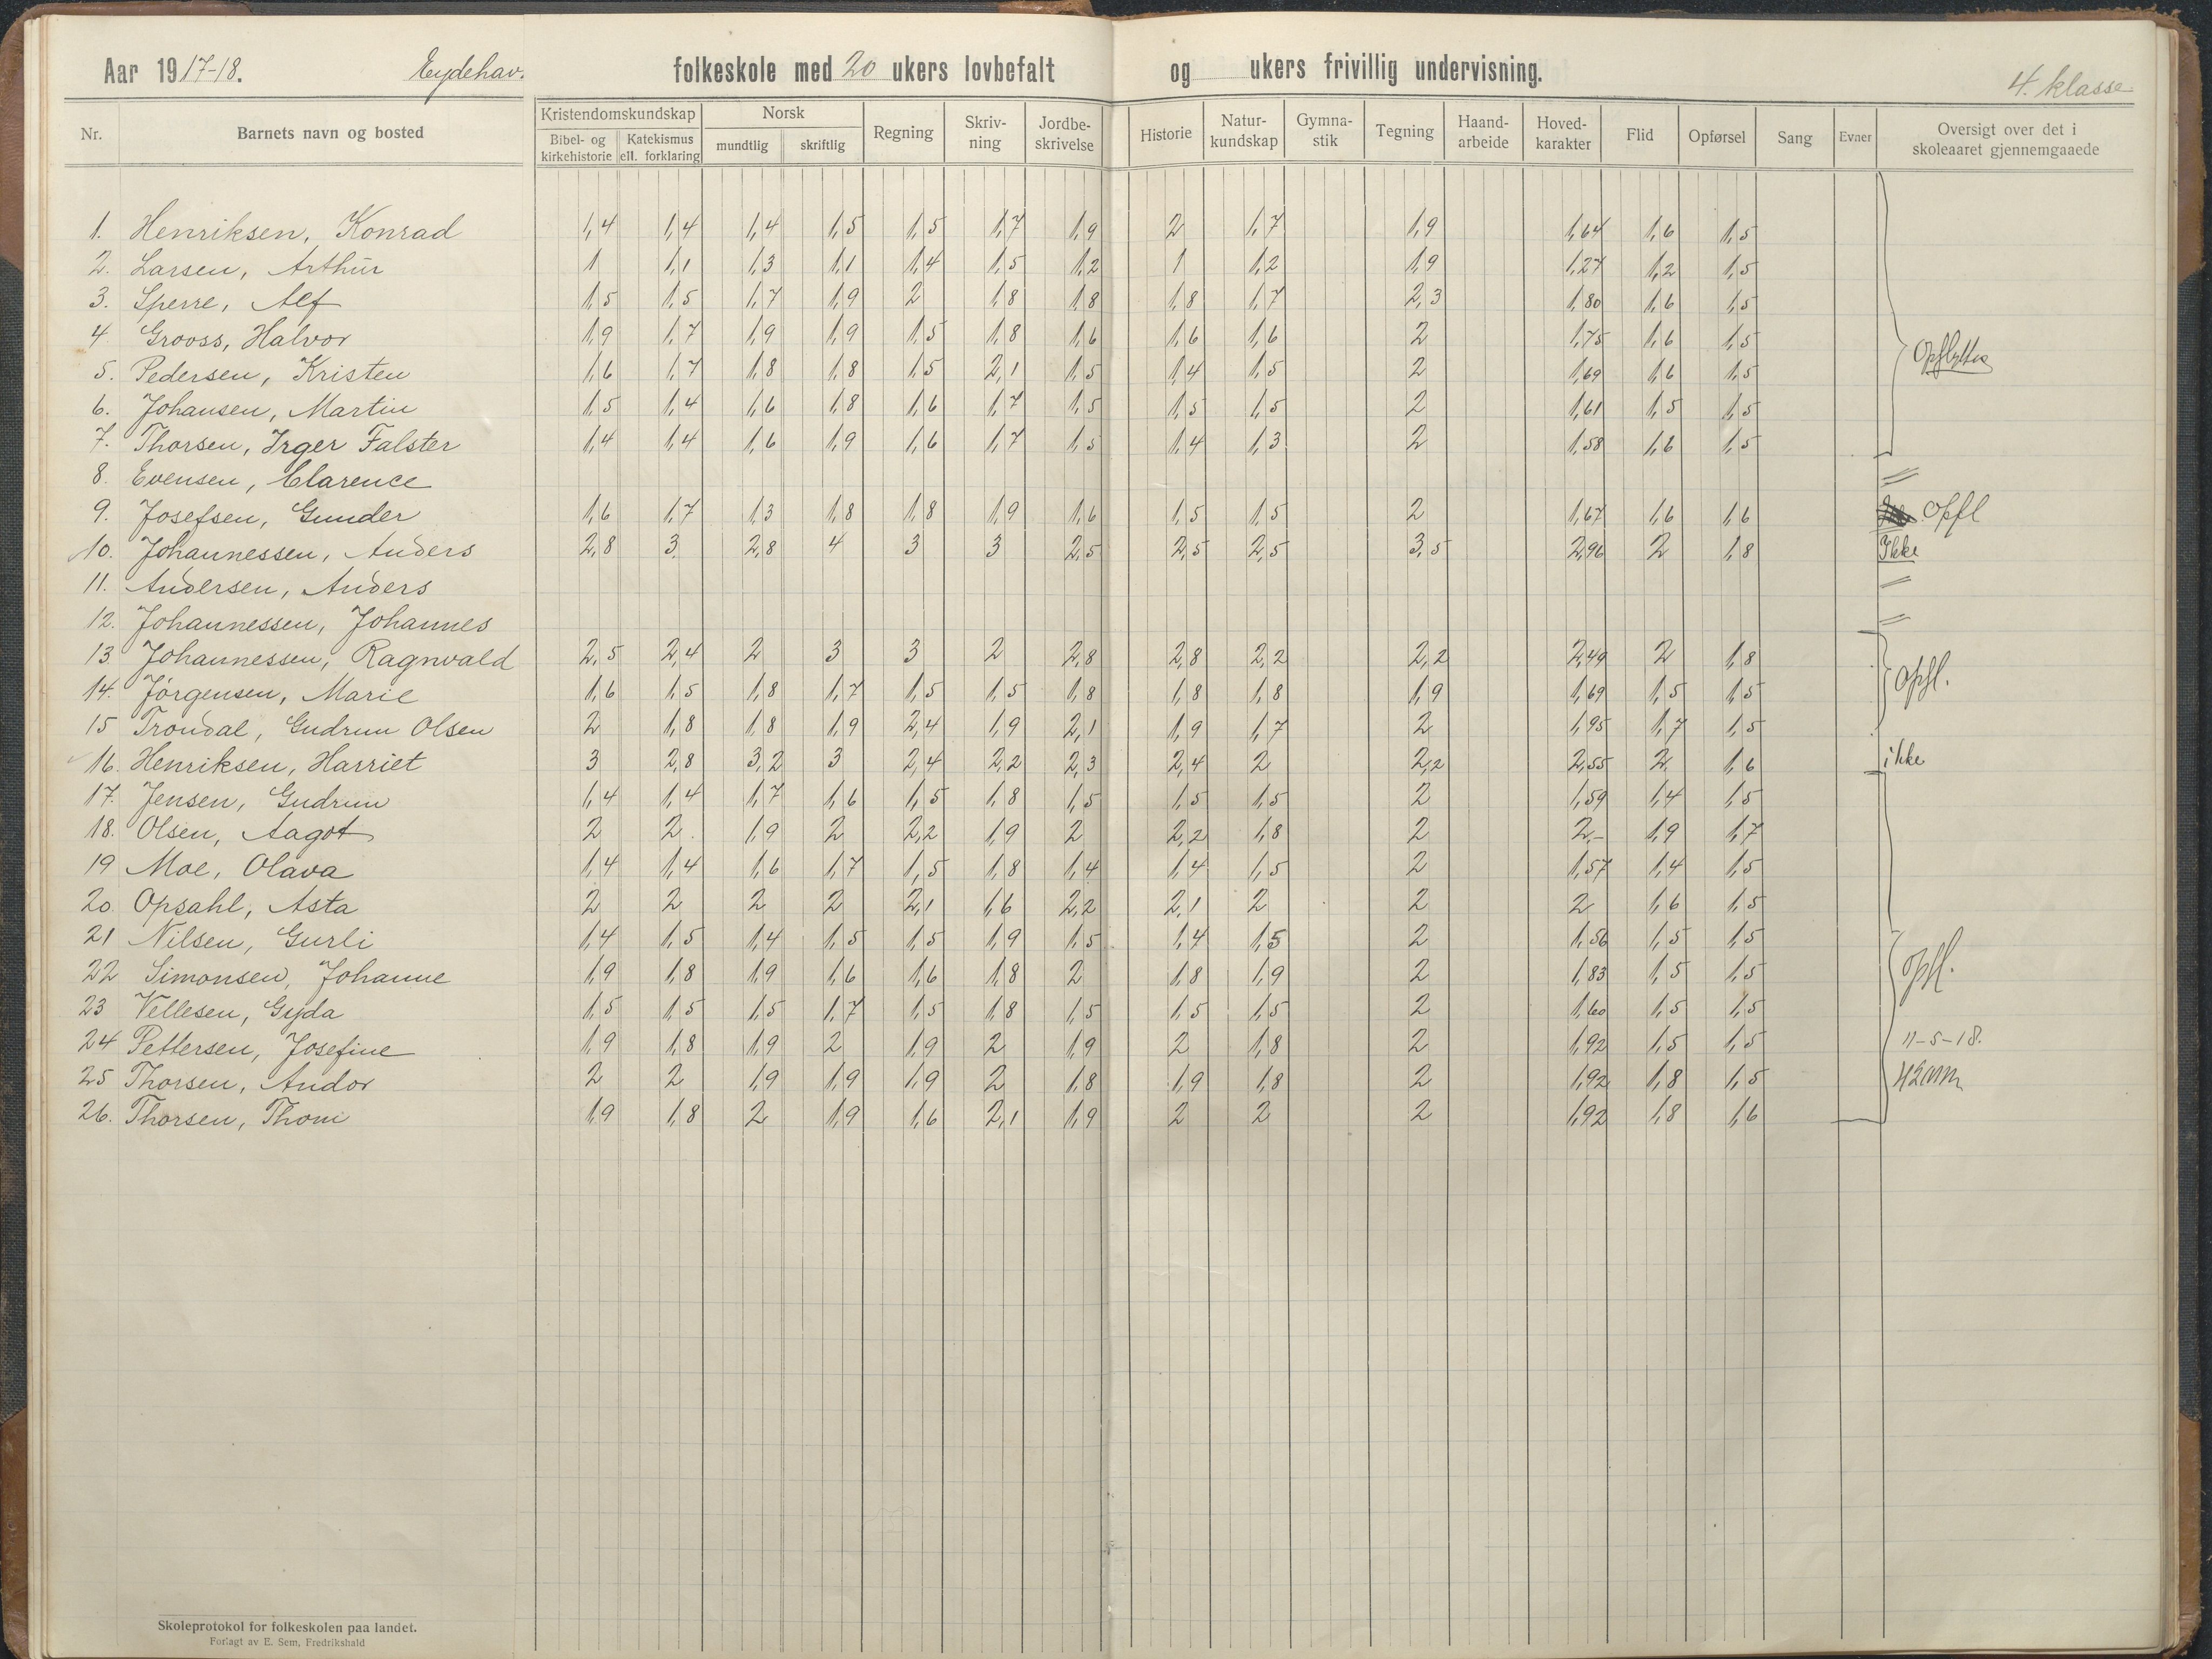 Aar 1917-18. Eydehav. folkeskole med 20 ukers lovbefalt og ukers frivillig undervisning. 4. klasse
Nr. Barnets navn og bosted Kristendomskundskap Bibel- og kirkehistorie Katekismus ell. forklaring Norsk mundtlig skriftlig Regning Skriv-ning Jordbe-skrivelse Historie Natur-kundskap Gymna-stik Tegning Haand-arbeide Hoved-karakter Flid Opførsel Sang Evner Oversigt over det i skoleaaret gjennemgaaede
1. Henriksen, Konrad 1,4 1,4 1,4 1,5 1,5 1,7 1,9 2 1,7 1,9 1,64 1,6 1,5
2. Larsen, Arthur 1 1,1 1,3 1,1 1,4 1,5 1,2 1 1,2 1,9 1,27 1,2 1,5
3. Sperre, Alf 1,5 1,5 1,7 1,9 2 1,8 1,8 1,8 1,7 2,3 1,80 1,6 1,5
4 Grooss, Halvor 1,9 1,7 1,9 1,9 1,5 1,8 1,6 1,6 1,6 2 1,75 1,6 1,5
5. Pedersen, Kristen 1,6 1,7 1,8 1,8 1,5 2,1 1,5 1,4 1,5 2 1,69 1,6 1,5 Opflyttes
6. Johansen, Martin 1,5 1,4 1,6 1,8 1,6 1,7 1,5 1,5 1,5 2 1,61 1,5 1,5
7. Thorsen, Irger Falster 1,4 1,4 1,6 1,9 1,6 1,7 1,5 1,4 1,3 2 1,58 1,6 1,5
8. Evensen, Clarence =
9. Josefsen, Gunder 1,6 1,7 1,3 1,8 1,8 1,9 1,6 1,5 1,5 2 1,67 1,6 1,6 Opfl
10. Johannessen, Anders 2,8 3 2,8 4 3 3 2,5 2,5 2,5 3,5 2,96 2 1,8 Ikke
11. Andersen, Anders =
12. Johannessen, Johannes =
13 Johannessen, Ragnvald 2,5 2,4 2 3 3 2 2,8 2,8 2,2 2,2 2,49 2 1,8
14. Jörgensen, Marie 1,6 1,5 1,8 1,7 1,5 1,5 1,8 1,8 1,8 1,9 1,69 1,5 1,5 opfl.
15 Trondal, Gudrun Olsen 2 1,8 1,8 1,9 2,4 1,9 2,1 1,9 1,7 2 1,95 1,7 1,5
16. Henriksen, Harriet 3 2,8 3,2 3 2,4 2,2 2,3 2,4 2 2,2 2,55 2 1,6 ikke
17. Jensen, Gudrun 1,4 1,4 1,7 1,6 1,5 1,8 1,5 1,5 1,5 2 1,59 1,4 1,5
18. Olsen, Aagot 2 2 1,9 2 2,2 1,9 2 2,2 1,8 2 2,- 1,9 1,7
19 Moe, Olava 1,4 1,4 1,6 1,7 1,5 1,8 1,4 1,4 1,5 2 1,57 1,4 1,5
20. Opsahl, Asta 2 2 2 2 2,1 1,6 2,2 2,1 2 2 2 1,6 1,5
21 Nilsen, Gurli 1,4 1,5 1,4 1,5 1,5 1,9 1,5 1,4 1,5 2 1,56 1,5 1,5
22 Simonsen, Johanne 1,9 1,8 1,9 1,6 1,6 1,8 2 1,8 1,9 2 1,83 1,5 1,5 opfl.
23 Vellesen, Gyda 1,5 1,5 1,5 1,7 1,5 1,8 1,5 1,5 1,5 2 1,60 1,5 1,5
24 Pettersen, Josefine 1,9 1,8 1,9 2 1,9 2 1,9 2 1,8 2 1,92 1,5 1,5 11-5-18.
25 Thorsen, Andor 2 2 1,9 1,9 1,9 2 1,8 1,9 1,8 2 1,92 1,8 1,5
26. Thorsen, Thom 1,9 1,8 2 1,9 1,6 2,1 1,9 2 2 2 1,92 1,8 1,6
Skoleprotokol for folkeskolen paa landet.
Forlagt av E. Sem, Fredrikshald